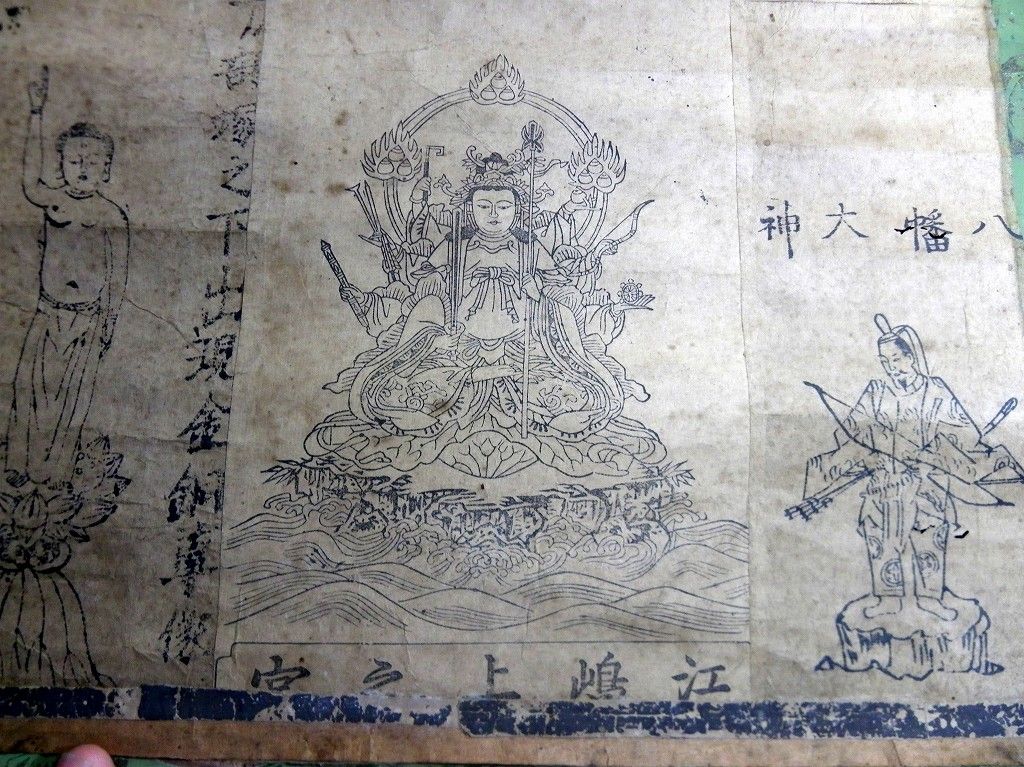 八幡大神
江嶋上之宮
之下出現金銅尊像